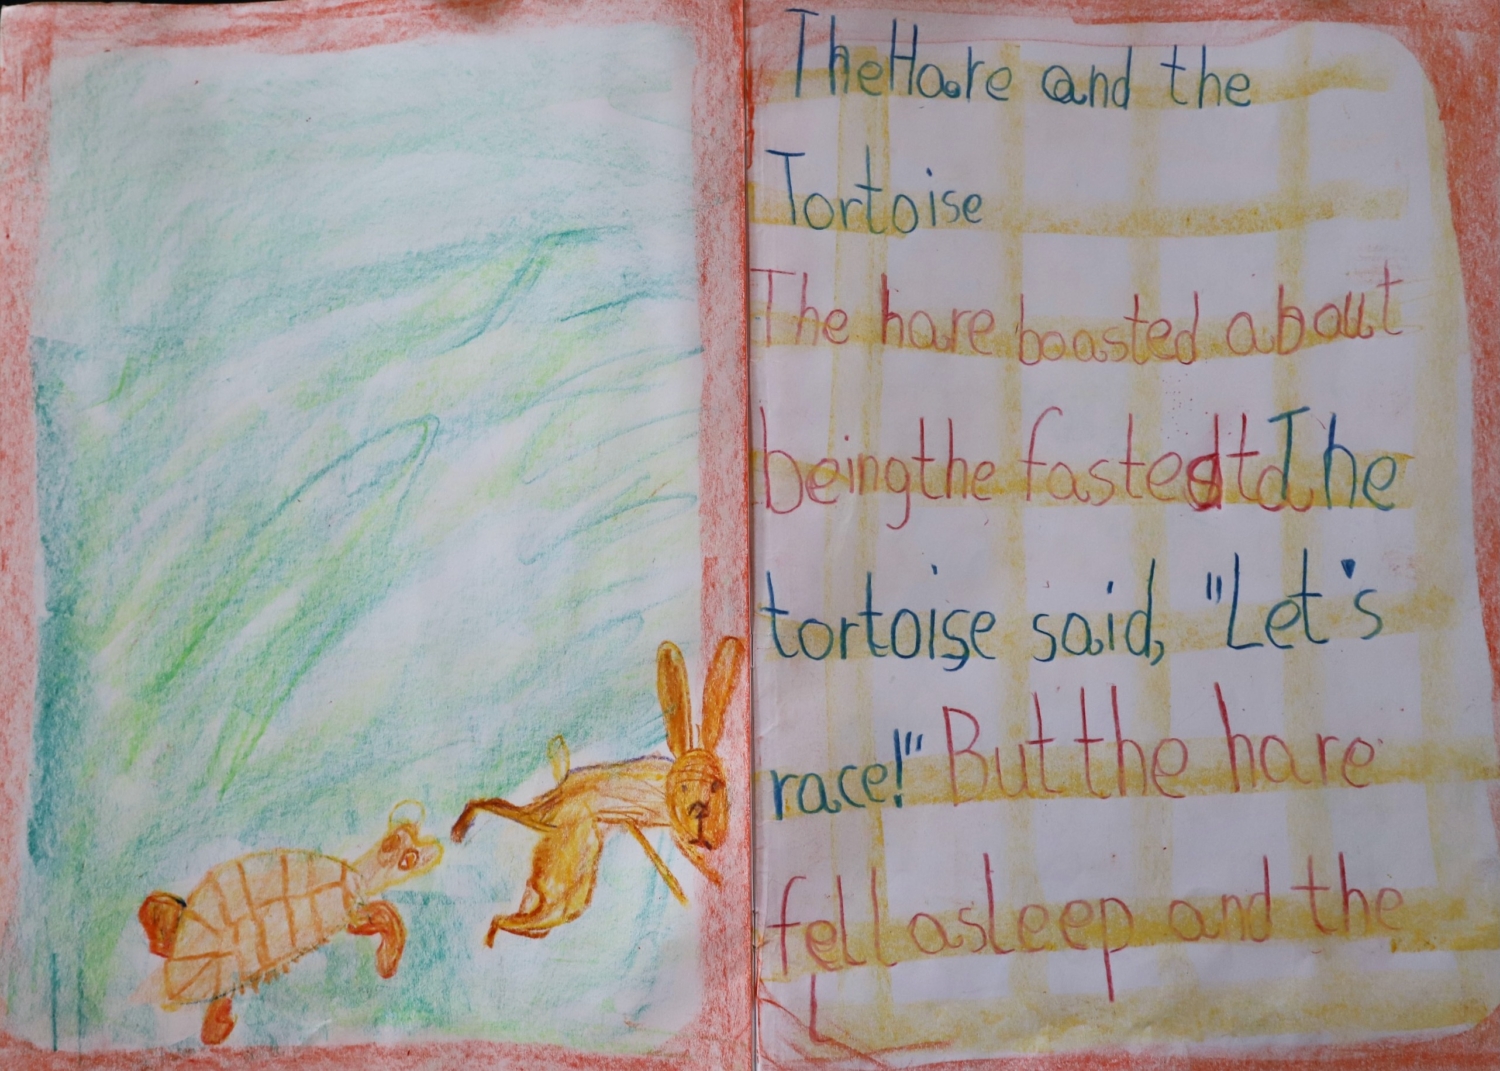 The Hare and the
Tortoise
The hare boasted about
being the fastedtd The
tortoise said, "Let's
race!" But the hare
fell asleep and the